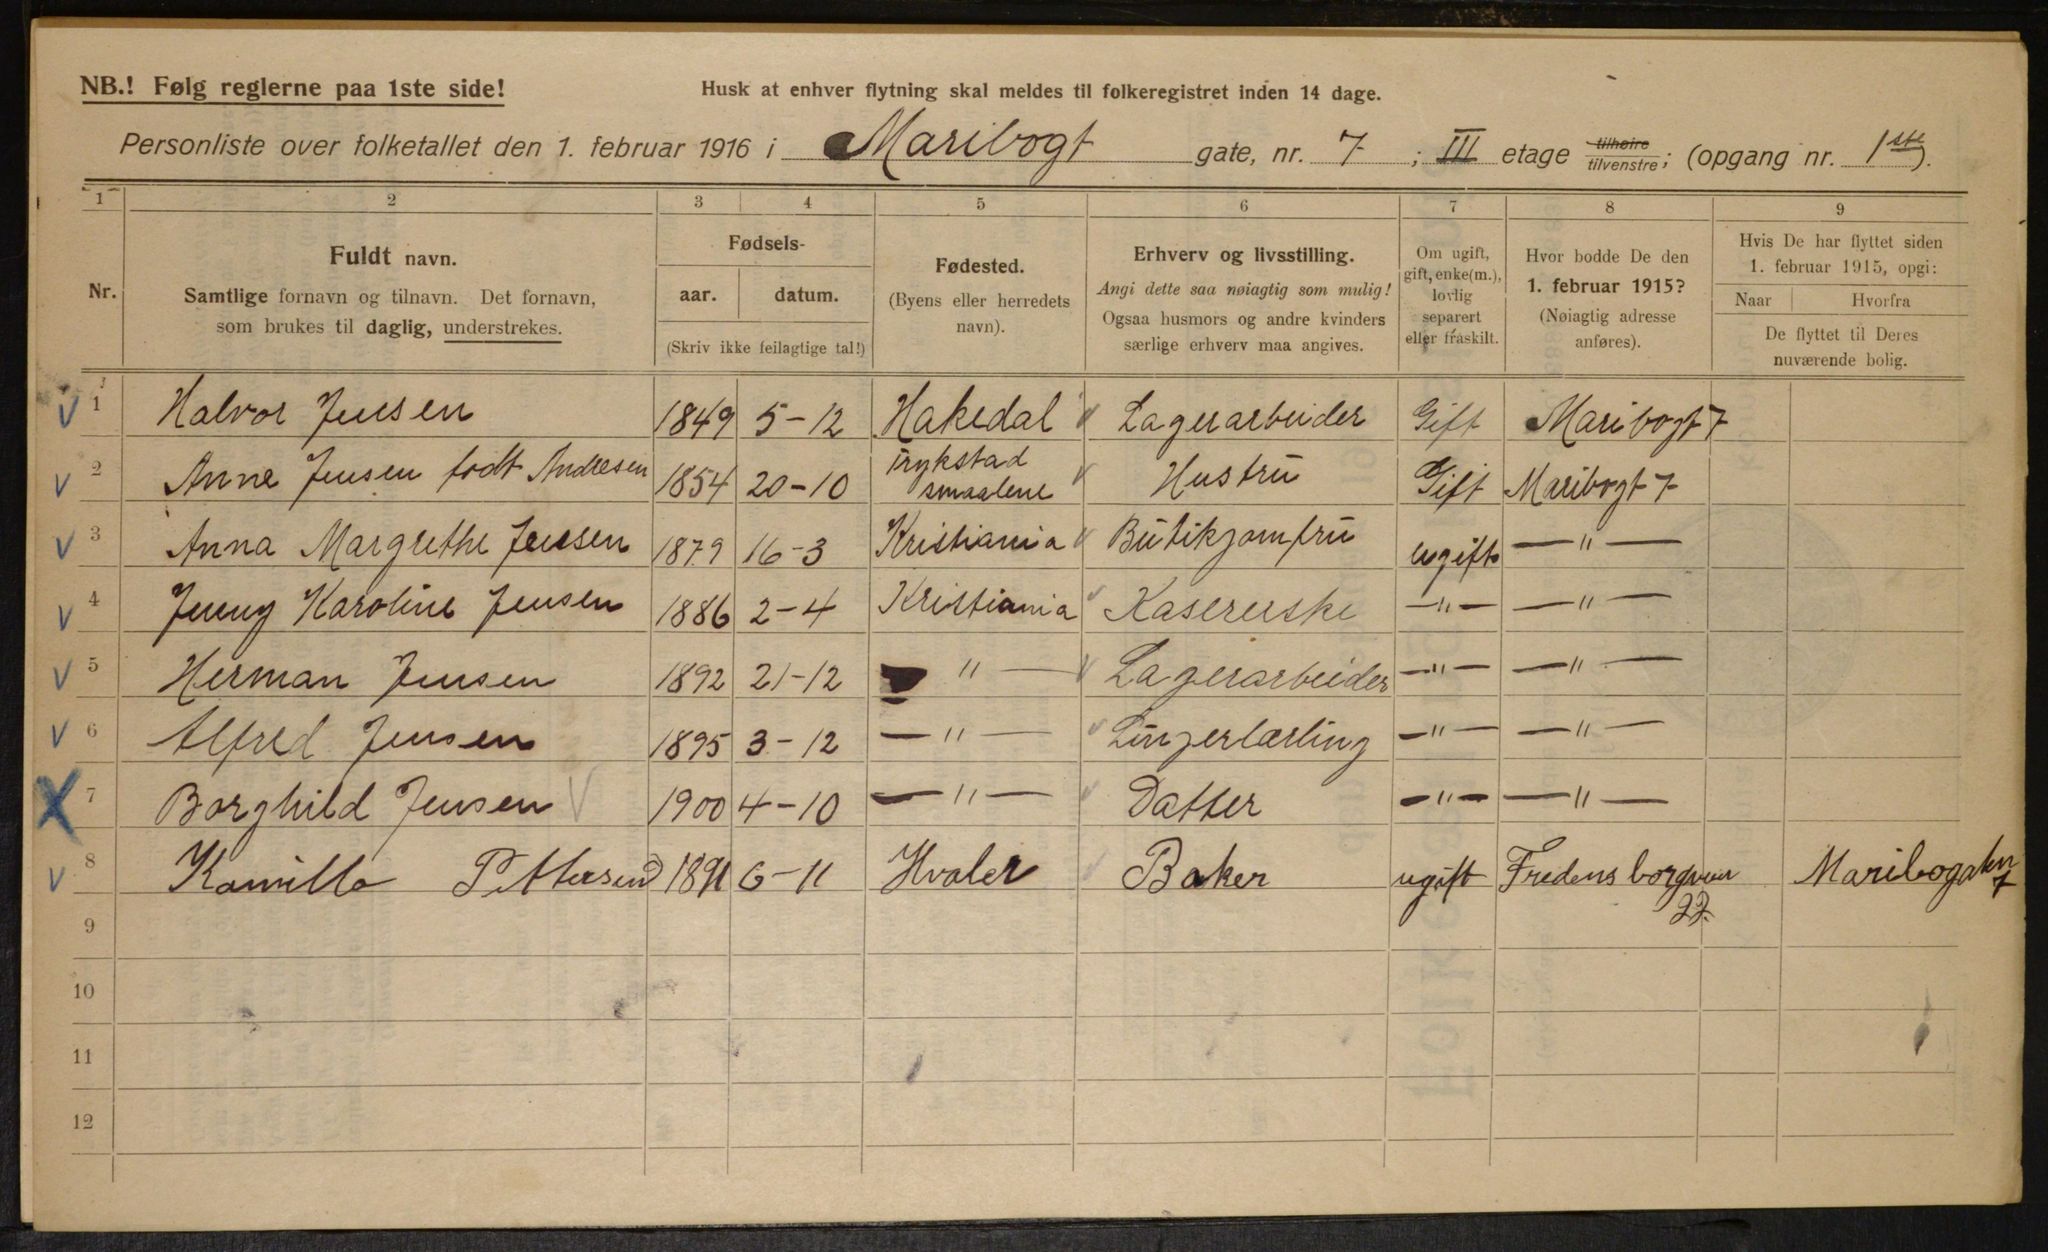 NB.! Følg reglerne paa 1ste side!
Husk at enhver flytning skal meldes til folkeregistret inden 14 dage.
Personliste over folketallet den 1. februar 1916 i Maribogt gate, nr. 7; III etage tilhøire tilvenstre; (opgang nr. 1ste).
1 2 3 4 5 6 7 8 9
Nr.
Fuldt navn.
Samtlige fornavn og tilnavn. Det fornavn,
som brukes til daglig, understrekes.
Fødsels-
aar. datum.
(Skriv ikke feilagtige tal!)
Fødested.
(Byens eller herredets
navn).
Erhverv og livsstilling.
Angi dette saa nøiagtig som mulig!
Ogsaa husmors og andre kvinders
særlige erhverv maa angives.
Om ugift,
gift, enke(m.),
lovlig
separert
eller fraskilt.
Hvor bodde De den
1. februar 1915?
(Nøiagtig adresse
anføres).
Hvis De har flyttet siden
1. februar 1915, opgi:
Naar Hvorfra
De flyttet til Deres
nuværende bolig.
1 Halvor Jensen 1849 5-12 Hakedal Lagerarbeider Gift Maribogt 7
2 Anne Jensen født Andresen 1854 20-10 Trykstad smaalene Hustru Gift Maribogt 7
3 Anna Margrethe Jensen 1879 16-3 Kristiania Butikjomfru ugift — " —
4 Jenny Karoline Jensen 1886 2-4 Kristiania Kasererske — " — — " —
5 Herman Jensen 1892 21-12 " — Lagerarbeider — " — — " —
6 Alfred Jensen 1895 3-12 — " — — " — — " —
7 Borghild Jensen 1900 4-10 — " — Datter — " — — " —
8 Kamilla Pettersen 1891 6-11 Hvaler Baker ugift Fredensborgveien 22. Maribogaten 7
9
10
11
12